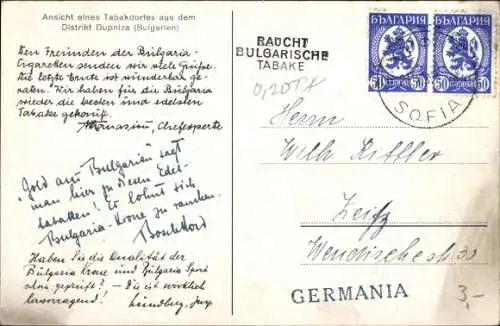 Ansicht eines Tabakdorfes aus dem
Distrikt Dupniza (Bulgarien)
Den Freunden der Bulgaria-
Cigaretten senden wir viele Grüsse.
Die letzte Ernte ist wunderbar ge-
raten! Wir haben für die Bulgaria
wieder die besten und edelsten
Tabake gekauft.
Athanasiu, Chefexperte
"Gold aus Bulgarien" sagt
man hier zu diesen Edel-
tabaken! Es lohnt sich
Bulgaria-Krone zu rauchen.
Haben Sie die Qualität der
Bulgaria Krone und Bulgaria Sport
schon geprüft? – die ist wirklich
hervorragend! Lundberg,
RAUCHT
BULGARISCHE
TABAKE
БЪЛГАРИЯ
БЪЛГАРИЯ
50 50
50 50
SOFIA
Herrn
Wilh
Zeitz
Wendische
GERMANIA
3,-